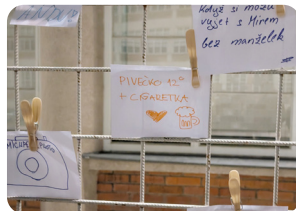 Když si můžu
vyjet s Mírem
bez manželek
PIVEČKO 12°
+ CIGARETKA